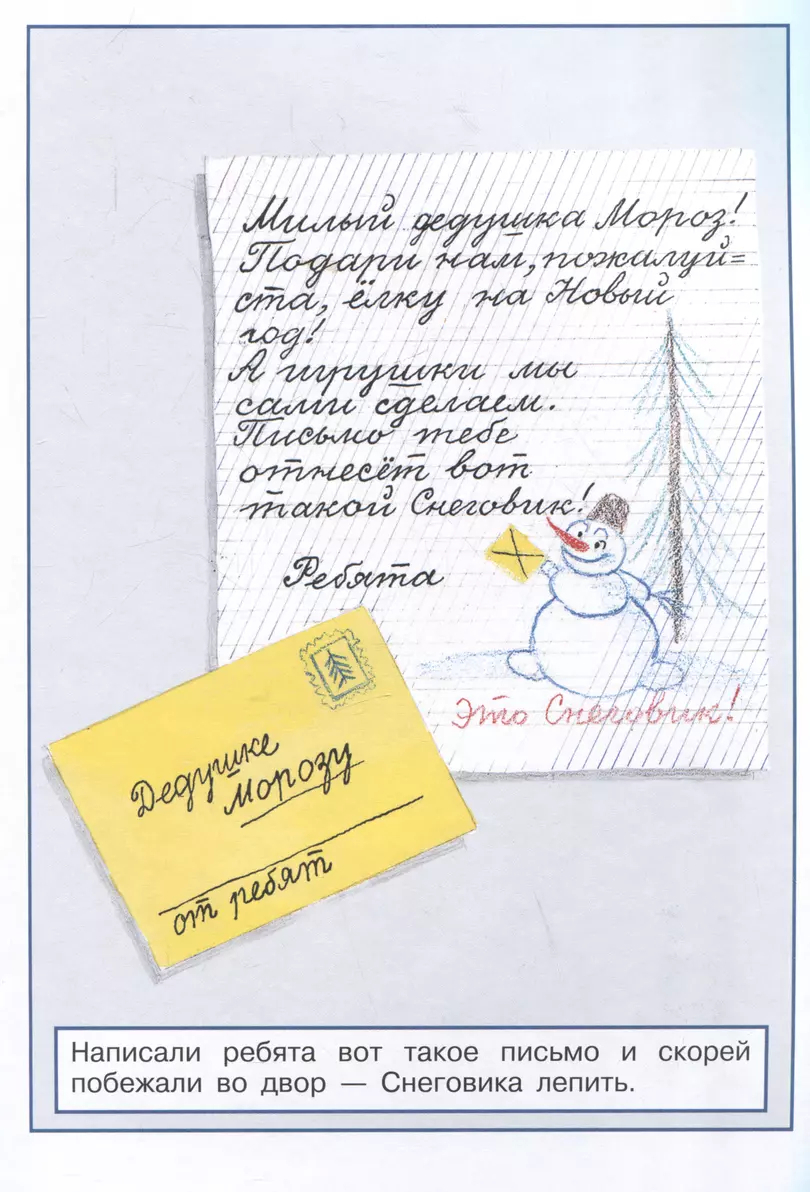 Милый дедушка Мороз!
Подари нам, пожалуй=
ста, ёлку на Новый
год!
А игрушки мы
сами сделаем.
Письмо тебе
отнесёт вот
такой Снеговик!
Ребята
Это Снеговик!
Дедушке
Морозу
от ребят
Написали ребята вот такое письмо и скорей
побежали во двор — Снеговика лепить.